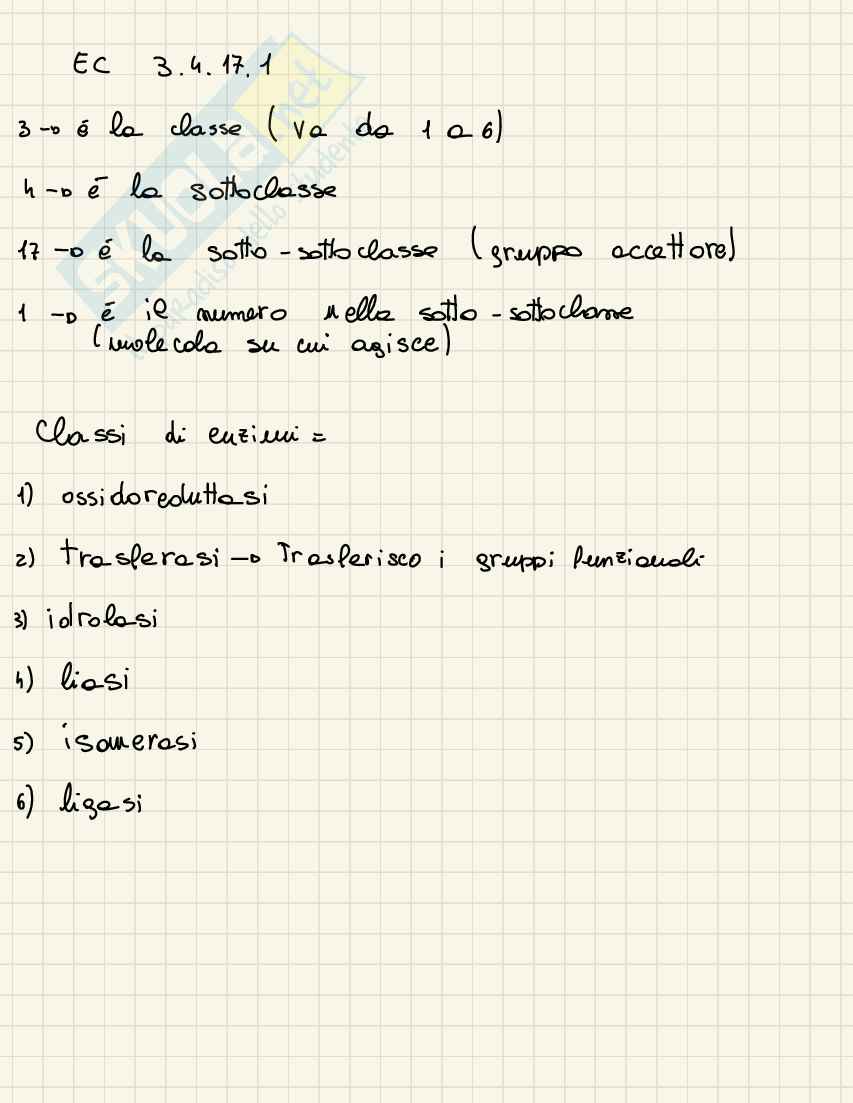 EC 3.4.17.1
3 → é la classe (va da 1 a 6)
4 → é la sottoclasse
17 → é la sotto-sottoclasse (gruppo accettore)
1 → é il numero nella sotto-sottoclasse
(molecola su cui agisce)
Classi di enzimi =
1) ossidoreduttasi
2) trasferasi → Trasferisco i gruppi funzionali
3) idrolasi
4) liasi
5) isomerasi
6) ligasi
SKUOLA.net
il paradiso dello studente